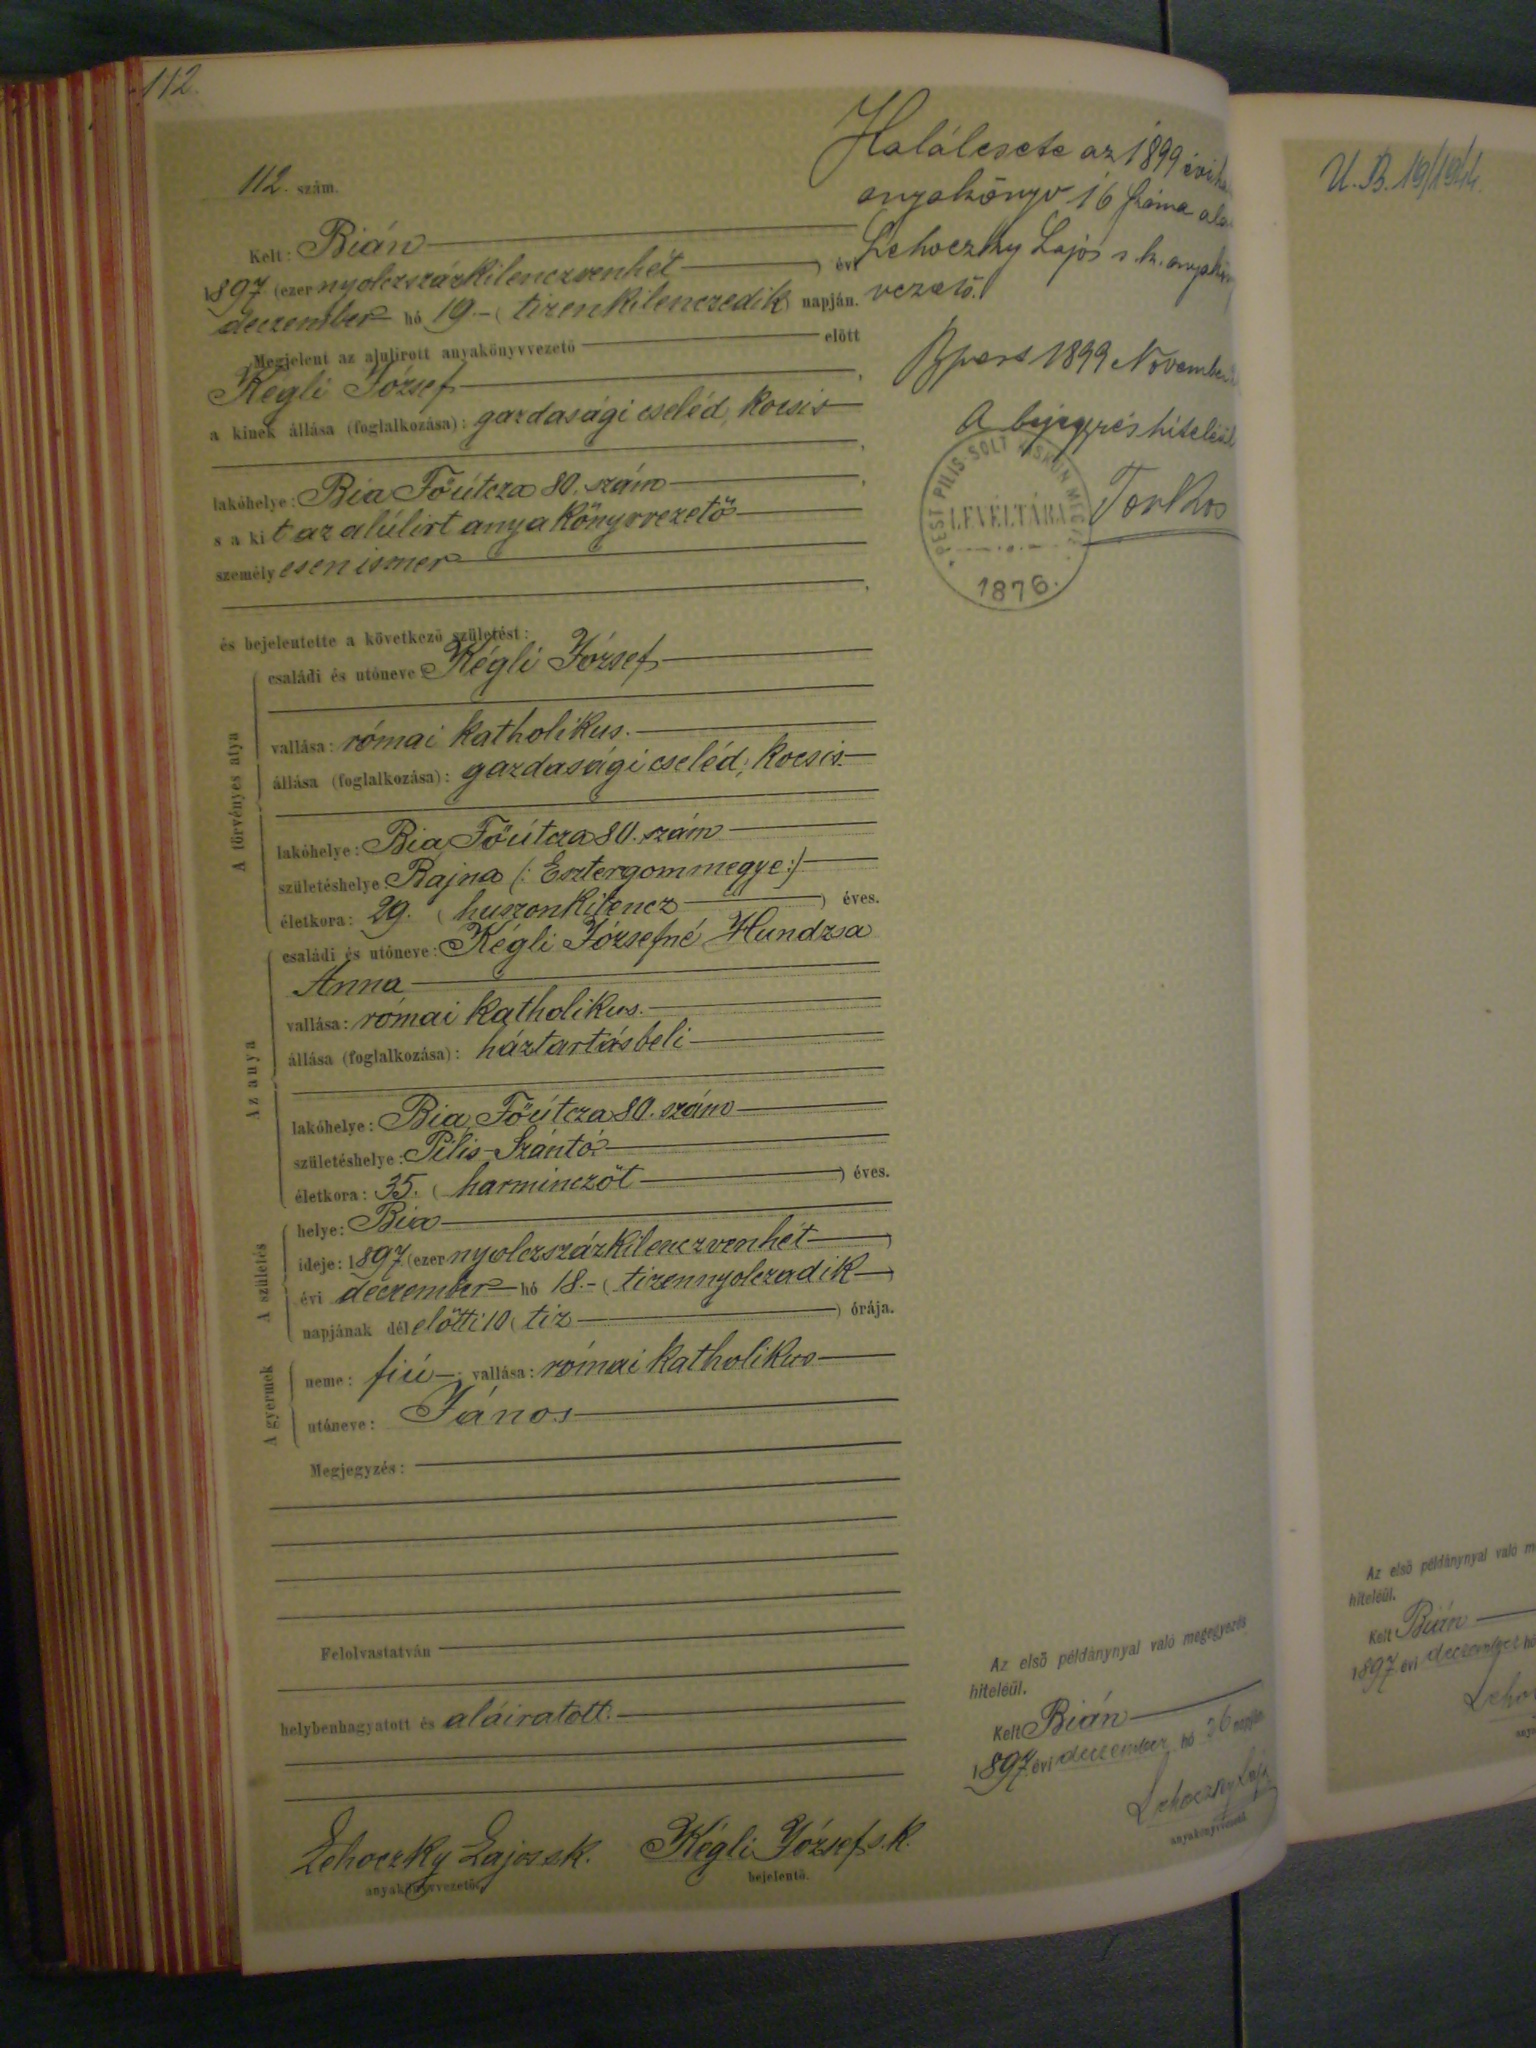 112.
112. szám.
Kelt: Bián
1897 (ezer nyolczszázkilenczvenhét) évi
deczember hó 19.- (tizenkilenczedik) napján.
Megjelent az alulirott anyakönyvvezető előtt
Kégli József,
a kinek állása (foglalkozása): gazdasági cseléd, kocsis
lakóhelye: Bia Főútcza 80. szám,
s a kit az alúlirt anyakönyvvezető
személyesen ismer
és bejelentette a következő születést:
A törvényes atya
családi és utóneve: Kégli József
vallása: római katholikus.
állása (foglalkozása): gazdasági cseléd; kocsis.
lakóhelye: Bia Főútcza 80. szám
születéshelye: Bajna (: Esztergommegye:)
életkora: 29. (huszonkilencz) éves.
Az anya
családi és utóneve: Kégli Józsefné Hundzsa
Anna
vallása: római katholikus.
állása (foglalkozása): háztartásbeli
lakóhelye: Bia Főútcza 80. szám
születéshelye: Pilis-Szántó
életkora: 35. (harminczöt) éves.
A születés
helye: Bia
ideje: 1897 (ezer nyolczszázkilenczvenhét)
évi deczember hó 18.- (tizennyolczadik)
napjának dél előtti 10 (tiz) órája.
A gyermek
neme: fiú; vallása: római katholikus
utóneve: János
Megjegyzés:
Felolvastatván
helybenhagyatott és aláiratott.
Lehoczky Lajos sk.
anyakönyvvezető.
Kégli József s.k.
bejelentő.
Halálesete az 1899 évi
anyakönyv 16 száma
Lehoczky Lajos s. k.
vezető.
Bpest 1899 November
A bejegyzés hiteléül
Torkos
PEST PILIS SOLT KISKUN MEGYE
LEVÉLTÁRA
1876.
Az első példánynyal való megegyezés
hiteléül.
Kelt Bián
1897 évi deczember hó 26 napján
Lehoczky Lajos
anyakönyvvezető.
U. B. 19/1944.
Az első példánynyal való
hiteléül.
Kelt Bián
1897 évi deczember hó